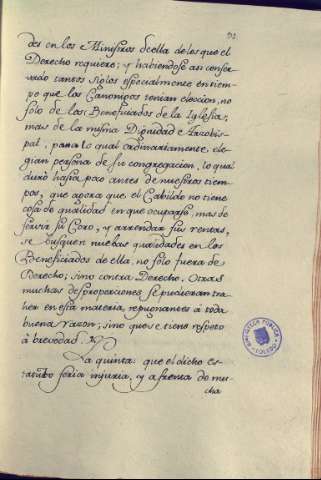 dos en los Ministros de ella de los que el
Derecho requiere; y habiendose asi conser-
vado tantos siglos especialmente en tiem-
po que los Canonigos tenian eleccion, no
solo de los Beneficiados de la Iglesia,
mas de la misma Dignidad e Arzobis-
pal, para lo qual ordinariamente, ele-
gian persona de su congregacion, lo qual
duró hasta poco antes de nuestros tiem-
pos, que agora que el Cabildo no tiene
cosa de qualidad en que ocuparse, mas de
servir su Coro, y arrendar sus rentas,
se busquen nuebas qualidades en los
Beneficiados de ella, no solo fuera de
Derecho; sino contra Derecho. Otras
muchas desproporciones se pucieran tra-
her en esta materia, repugnantes á toda
buena razon; sino que se tiene respeto
á brevedad.
La quinta: que el dicho es-
tatuto seria injuria, y afrenta de mu-
cha
BIBLIOTECA PUBLICA
TOLEDO